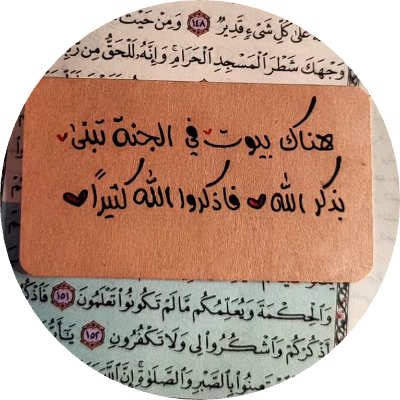 عَلَىٰ كُلِّ شَىْءٍ قَدِيرٌ ١٤٨ وَمِنْ حَيْثُ
وَجْهَكَ شَطْرَ ٱلْمَسْجِدِ ٱلْحَرَامِ وَإِنَّهُۥ لَلْحَقُّ مِن
هناك بيوت في الجنة تبنى
بذكر الله فاذكروا الله كثيراً
وَٱلْحِكْمَةَ وَيُعَلِّمُكُم مَّا لَمْ تَكُونُوا۟ تَعْلَمُونَ ١٥١ فَٱذْ
أَذْكُرْكُمْ وَٱشْكُرُوا۟ لِى وَلَا تَكْفُرُونِ ١٥٢ يَٰٓأَ
ٱسْتَعِينُوا۟ بِٱلصَّبْرِ وَٱلصَّلَوٰةِ إِنَّ ٱللَّهَ